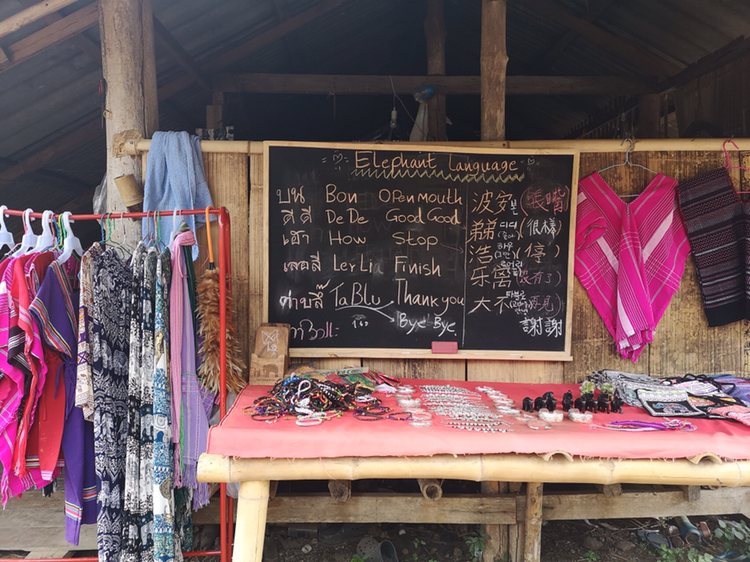 Elephant Language
บน Bon Open mouth 波安 (張嘴)
ดี ดี DeDe Good Good 弟弟 디디 (很樣)
How Stop 浩 하우 (停)
LeyLia Finish 乐离 (沒有了)
TaBlu Thank you 大不 再見
Bye Bye. 謝謝